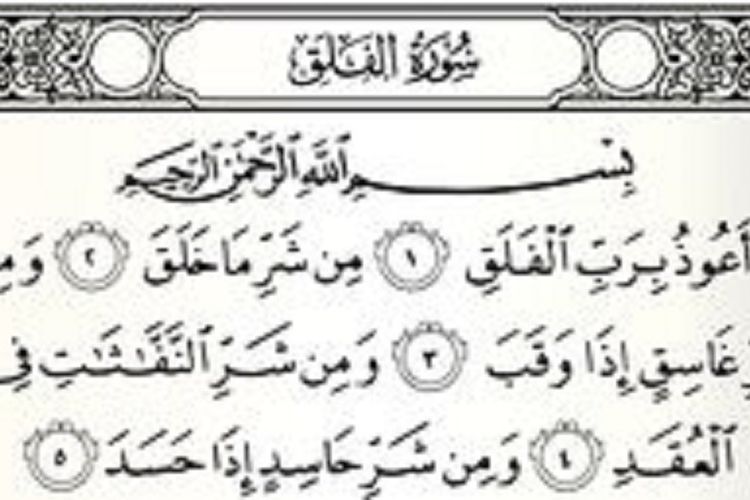 سُورَةُ الفَلَقِ
بِسْمِ ٱللَّهِ ٱلرَّحْمَٰنِ ٱلرَّحِيمِ
أَعُوذُ بِرَبِّ ٱلْفَلَقِ ١ مِن شَرِّ مَا خَلَقَ ٢
غَاسِقٍ إِذَا وَقَبَ ٣ وَمِن شَرِّ ٱلنَّفَّٰثَٰتِ فِي
ٱلْعُقَدِ ٤ وَمِن شَرِّ حَاسِدٍ إِذَا حَسَدَ ٥